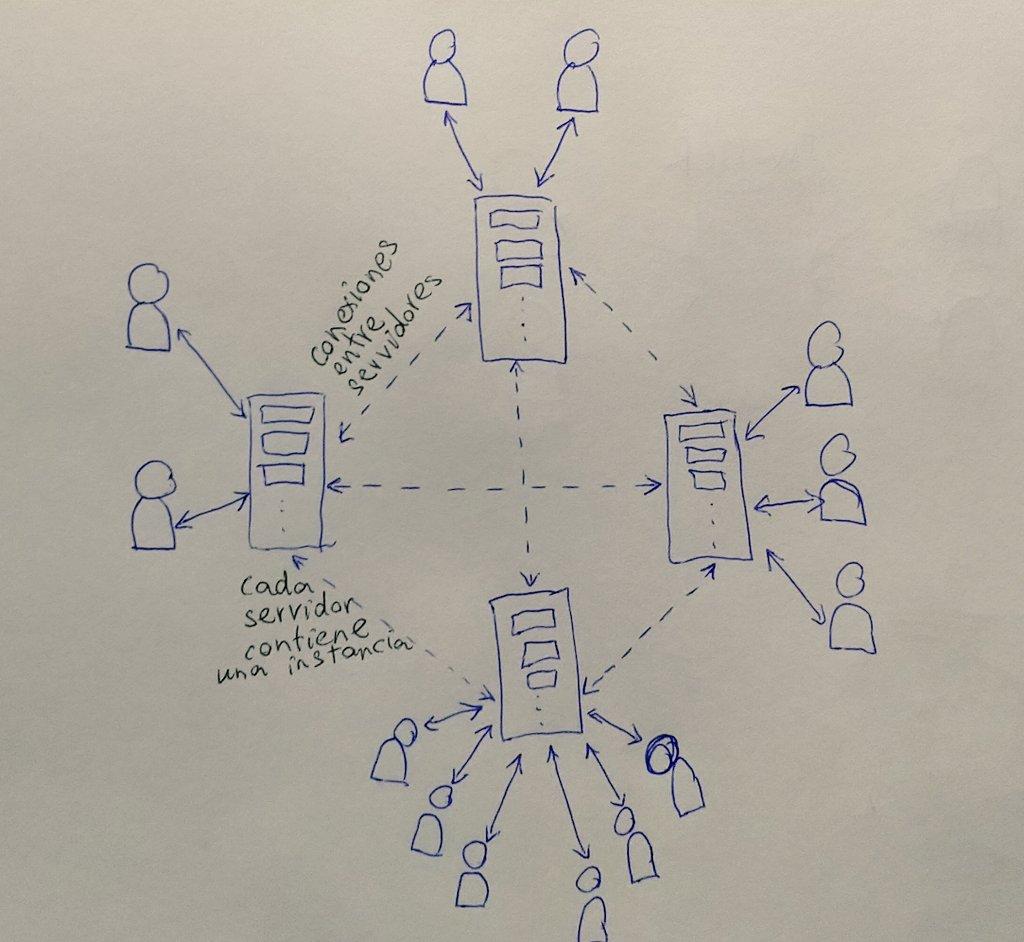 conexiones
entre
servidores
cada
servidor
contiene
una instancia